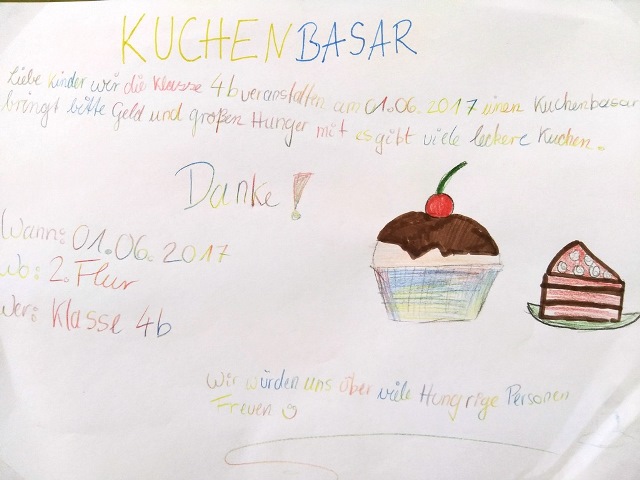 KUCHENBASAR
Liebe Kinder wir die Klasse 4b veranstalten am 01.06.2017 einen Kuchenbasar
bringt bitte Geld und großen Hunger mit es gibt viele leckere Kuchen.
Danke!
Wann: 01.06.2017
Wo: 2. Flur
Wer: Klasse 4b
Wir würden uns über viele Hungrige Personen
Freuen